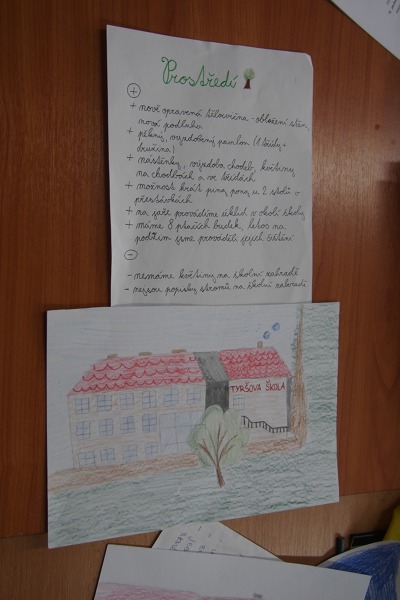 Prostředí
+
+ nově opravená tělocvična - obložení stěn,
nová podlaha
+ pěkný, vyzdobený pavilon (1. třídy+
družina)
+ nástěnky, výzdoba chodeb, květiny
na chodbách a ve třídách
+ možnost hrát ping pong u 2 stolů o
přestávkách
+ na jaře provádíme úklid v okolí školy
+ máme 8 ptačích budek, letos na
podzim jsme prováděli jejich čištění
-
- nemáme květiny na školní zahradě
- nejsou popisky stromů na školní zahradě
TYRŠOVA ŠKOLA